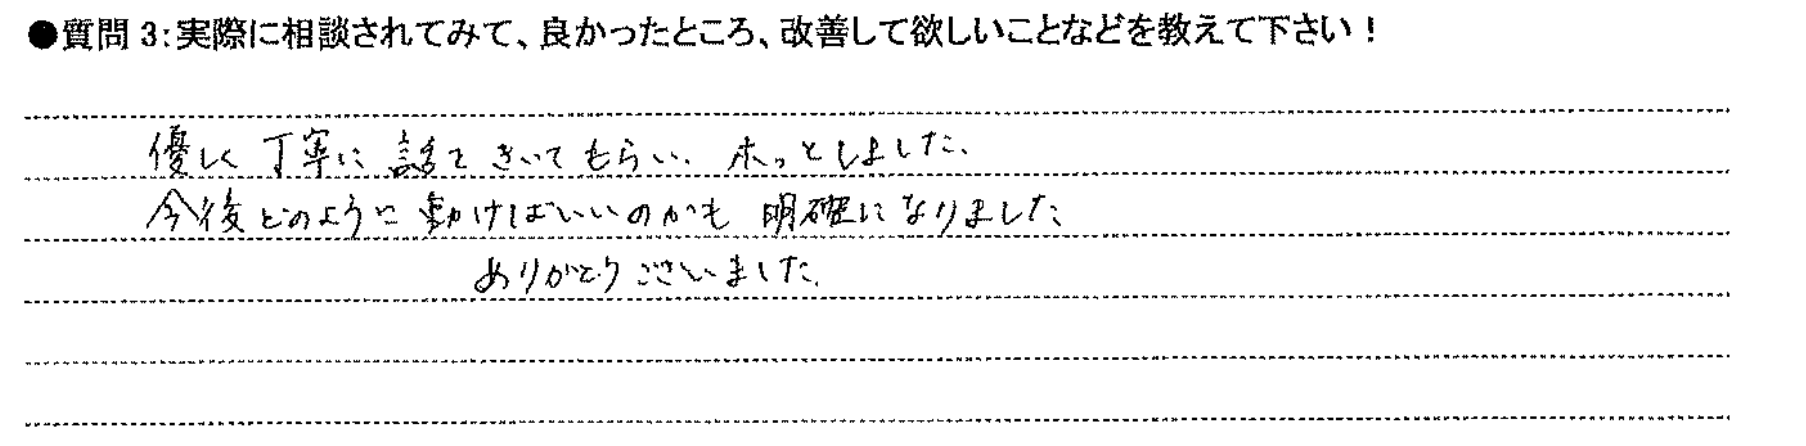 ●質問 3:実際に相談されてみて、良かったところ、改善して欲しいことなどを教えて下さい!
優しく丁寧に話をきいてもらい、ホッとしました、
今後どのように動けばいいのかも明確になりました
ありがとうございました、